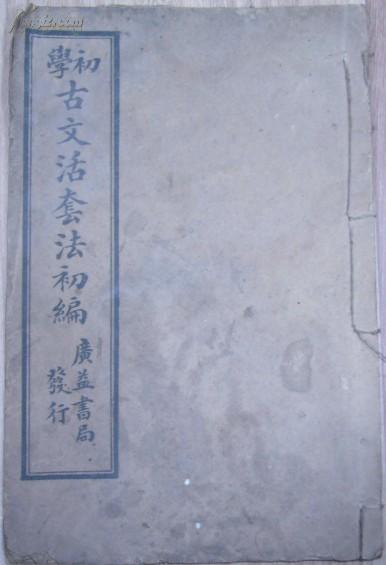 初學古文活套法初編
廣益書局
發行